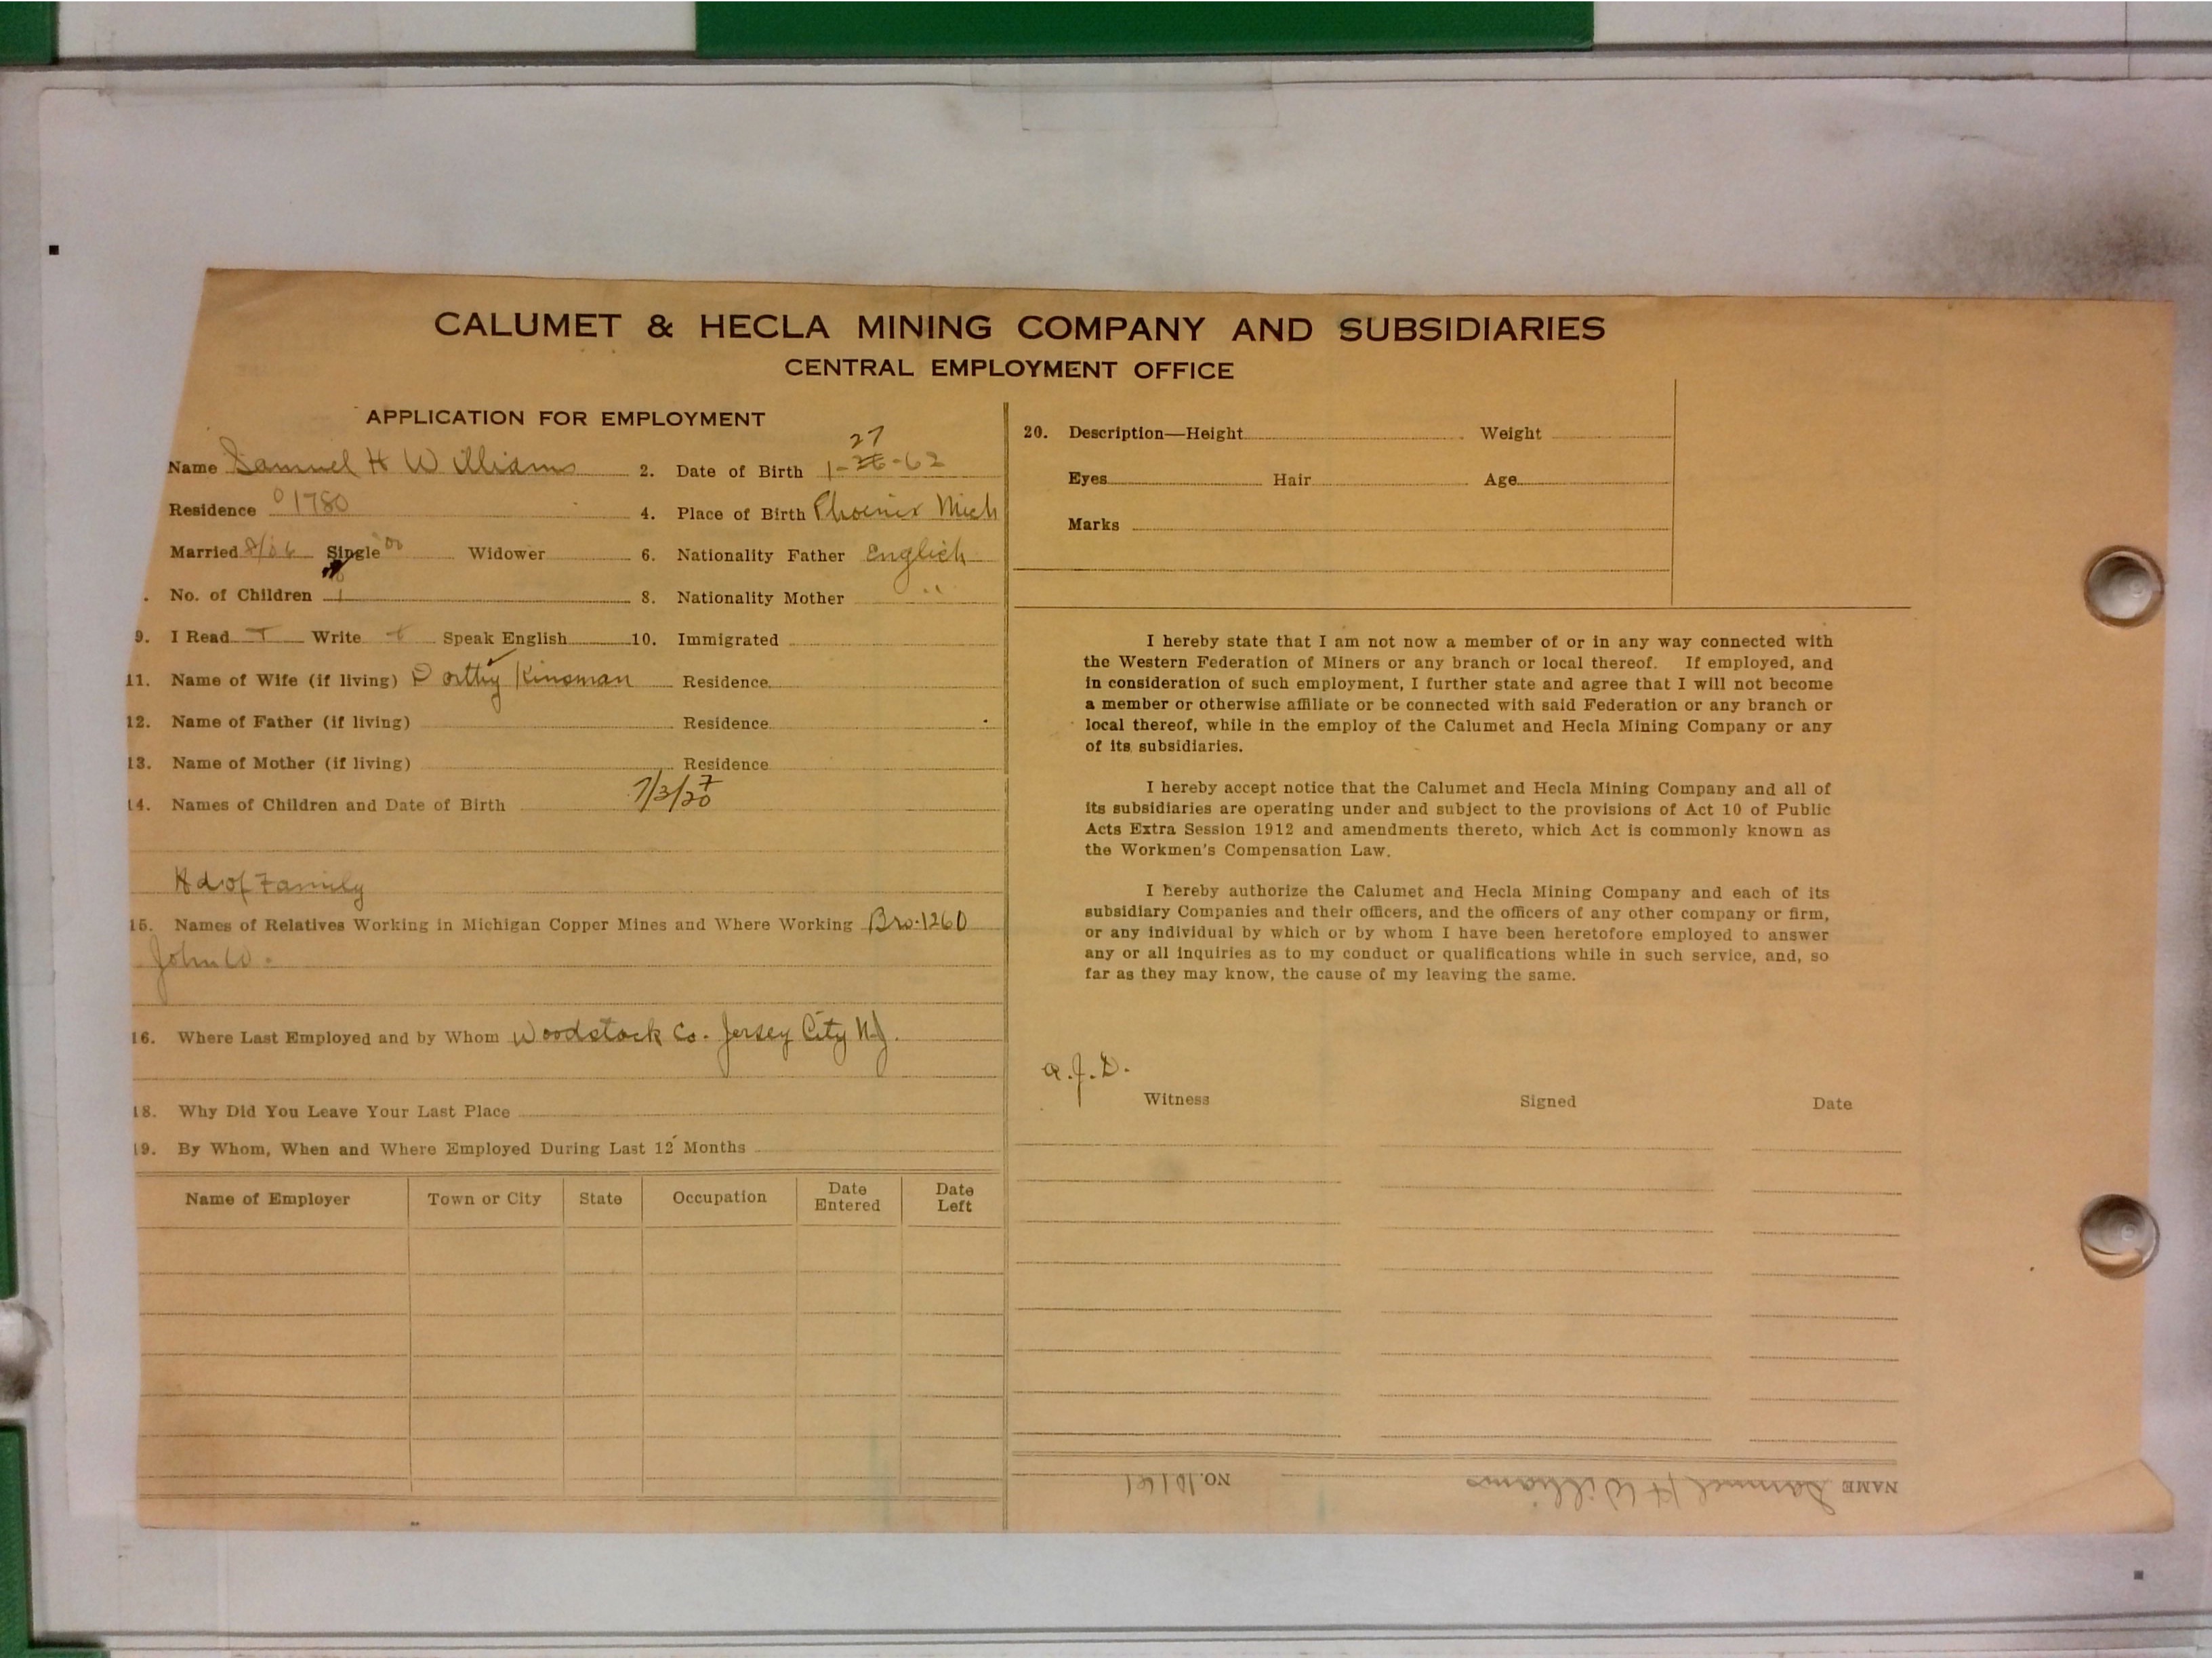 CALUMET & HECLA MINING COMPANY AND SUBSIDIARIES
CENTRAL EMPLOYMENT OFFICE
APPLICATION FOR EMPLOYMENT
Name Samuel H Williams 2. Date of Birth 1-26-62 27
Residence 1780 4. Place of Birth Phoenix Mich
Married 8/06 Single Widower 6. Nationality Father English
. No. of Children 1 8. Nationality Mother "
9. I Read Write Speak English 10. Immigrated
11. Name of Wife (if living) Dorthy Kinsman Residence
12. Name of Father (if living) Residence
13. Name of Mother (if living) Residence
14. Names of Children and Date of Birth 7/3/20 7
Hd of Family
15. Names of Relatives Working in Michigan Copper Mines and Where Working Bro-1260
John W.
16. Where Last Employed and by Whom Woodstock Co. Jersey City N.J.
18. Why Did You Leave Your Last Place
19. By Whom, When and Where Employed During Last 12 Months
Name of Employer Town or City State Occupation Date Entered Date Left
20. Description—Height Weight
Eyes Hair Age
Marks
I hereby state that I am not now a member of or in any way connected with
the Western Federation of Miners or any branch or local thereof. If employed, and
in consideration of such employment, I further state and agree that I will not become
a member or otherwise affiliate or be connected with said Federation or any branch or
local thereof, while in the employ of the Calumet and Hecla Mining Company or any
of its subsidiaries.
I hereby accept notice that the Calumet and Hecla Mining Company and all of
its subsidiaries are operating under and subject to the provisions of Act 10 of Public
Acts Extra Session 1912 and amendments thereto, which Act is commonly known as
the Workmen's Compensation Law.
I hereby authorize the Calumet and Hecla Mining Company and each of its
subsidiary Companies and their officers, and the officers of any other company or firm,
or any individual by which or by whom I have been heretofore employed to answer
any or all inquiries as to my conduct or qualifications while in such service, and, so
far as they may know, the cause of my leaving the same.
a.J.D.
Witness Signed Date
NAME Samuel H Williams NO. 10161